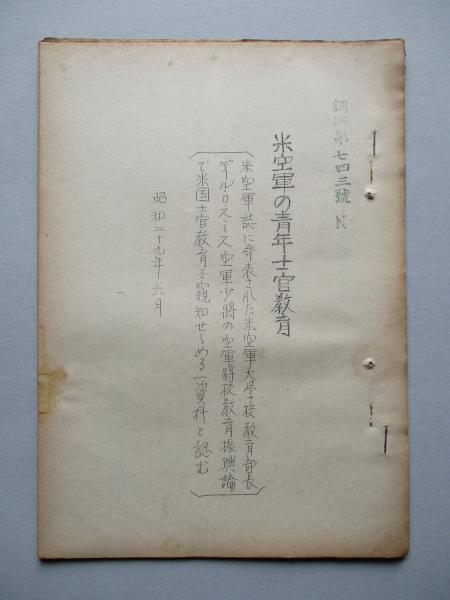 調研第七四三號 N
米空軍の青年士官教育
米空軍誌に発表された米空軍大学校教育部長
デールOスミス空軍少將の空軍將校教育振興論
で米国士官教育を窺知せしめる一資料と認む
昭和二十九年六月